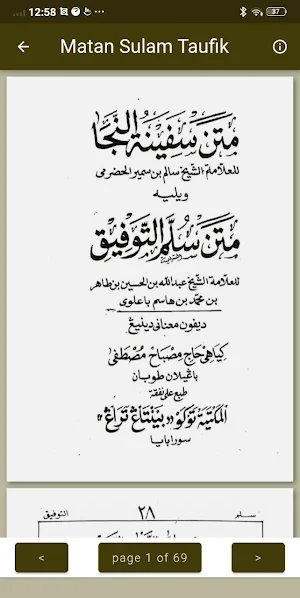 12:58
37
Matan Sulam Taufik
متن سفينة النجا
للعلامة الشيخ سالم بن سمير الحضرمى
ويليه
متن سلم التوفيق
للعلامة الشيخ عبدالله بن الحسين بن طاهر
بن محمد بن هاسم باعلوى
ديفون معنانى دينيڠ
كياهى حاج مصباح مصطفى
باڠيلان طوبان
طبع على نفقة
المكتبة توكو « بينتاڠ تراڠ »
سورابايا
سلم ٢٨ التوفيق
<
page 1 of 69
>